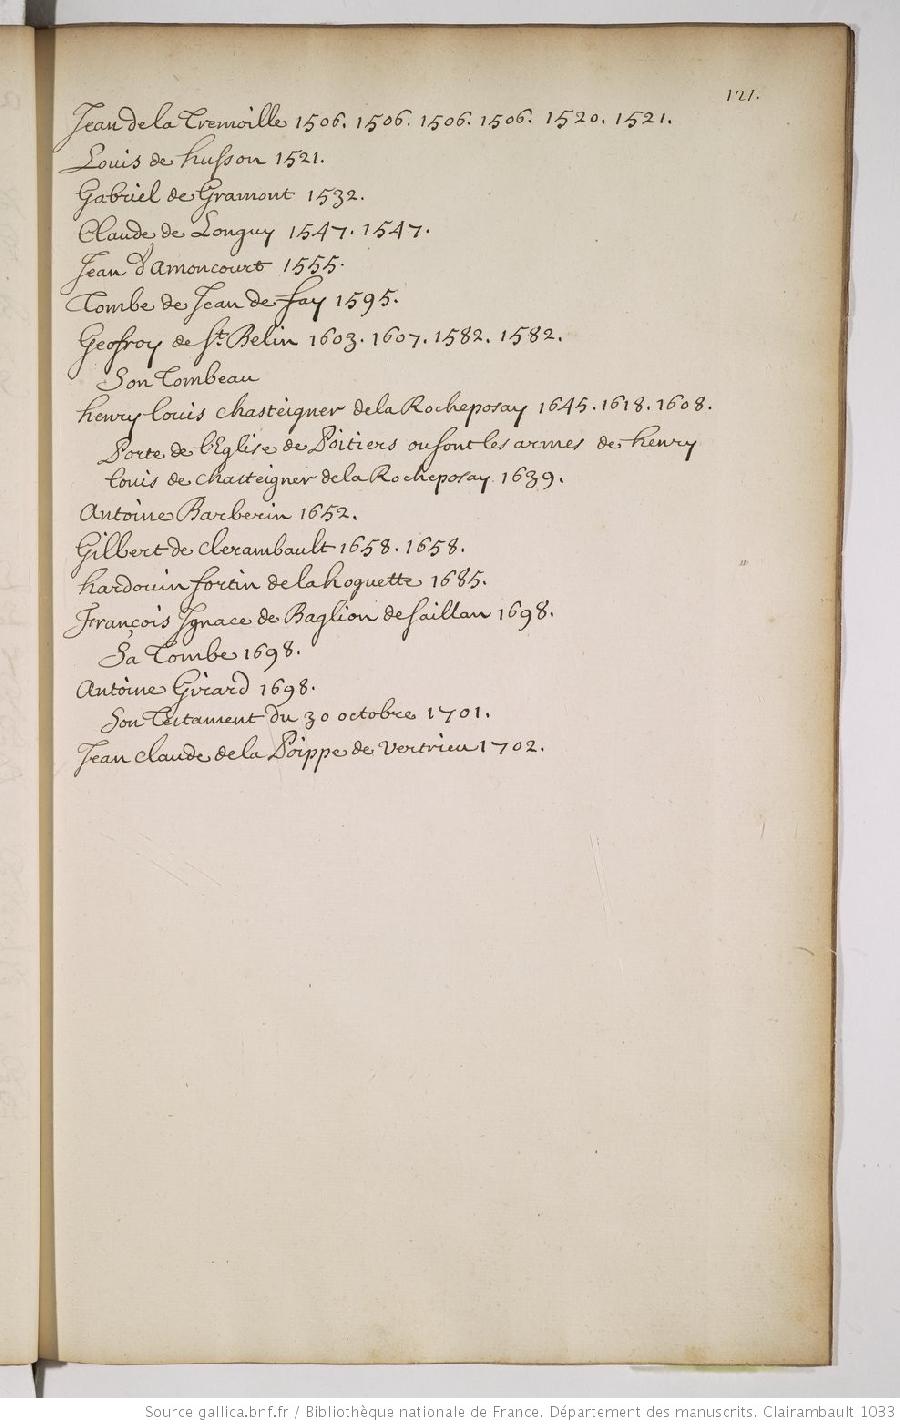 121.
Jean de la Tremoille 1506. 1506. 1506. 1506. 1520. 1521.
Louis de husson 1521.
Gabriel de Gramont 1532.
Claude de Longuy 1547. 1547.
Jean d'Amoncourt 1555.
Tombe de Jean de fay 1595.
Geofroy de St. Belin 1603. 1607. 1582. 1582.
Son Tombeau
henry louis chasteigner de la Rocheposay 1645. 1618. 1608.
Porte de l'Eglise de Poitiers ou sont les armes de henry
louis de chasteigner de la Rocheposay 1639.
Antoine Barberin 1652.
Gilbert de clerambault 1658. 1658.
hardouin fortin de la hoguette 1685.
François Ignace de Baglion de saillan 1698.
Sa Tombe 1698.
Antoine Girard 1698.
Son Testament du 30 octobre 1701.
Jean claude de la Poippe de vertrieu 1702.
Source gallica.bnf.fr / Bibliothèque nationale de France. Département des manuscrits. Clairambault 1033